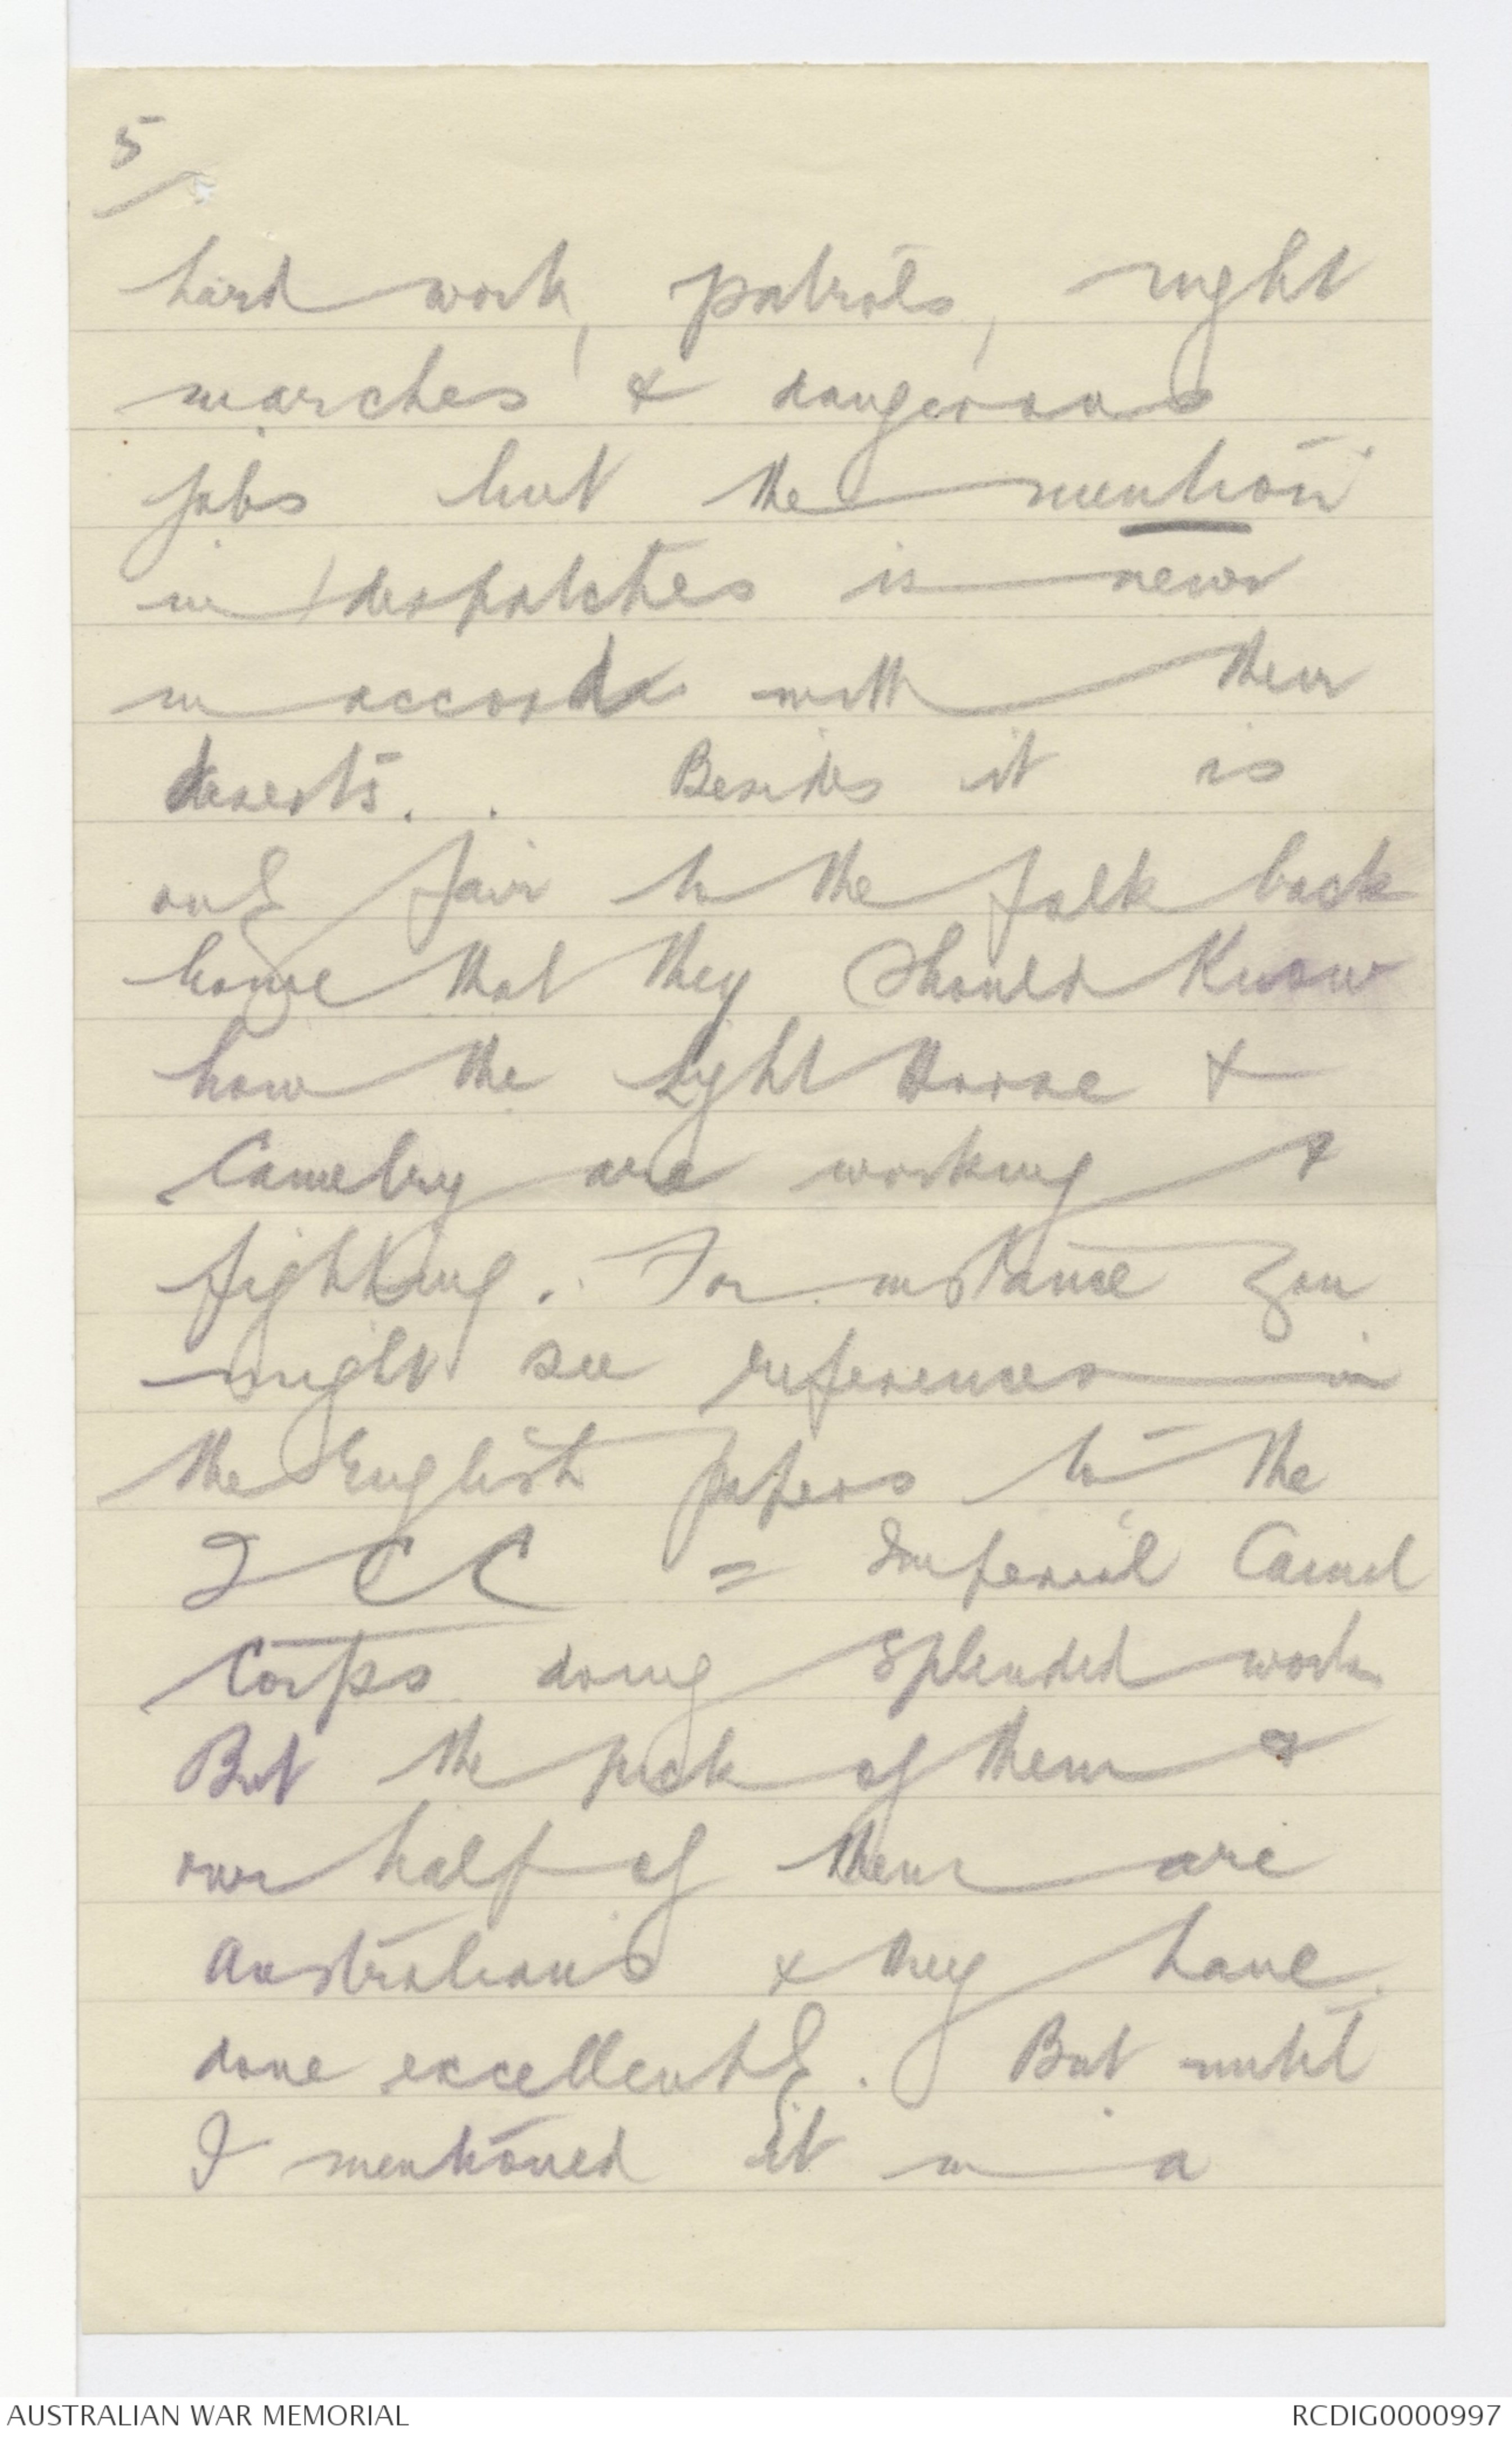 5/
hard work, patrols, night
marches & dangerous
jobs but the mention
in despatches is never
in accord with their
deserts. Besides it is
only fair to the folk back
home that they should know
how the Light Horse &
Camelry are working &
fighting. For instance you
might see references in
the English papers to the
ICC = Imperial Camel
Corps doing splendid work
But the pick of them &
over half of them are
Australians & they have
done excellently. But until
I mentioned it in a
AUSTRALIAN WAR MEMORIAL
RCDIG0000997